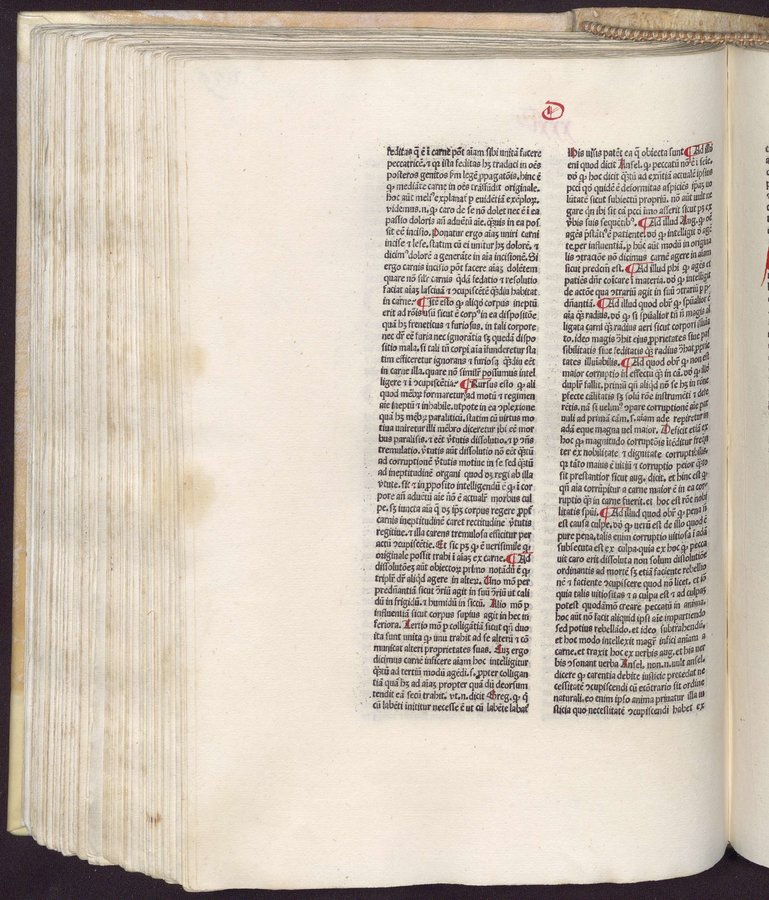 D
feditas q̄ ē ī carne pōt aīam sibi unitā facere
peccatricē. ⁊ qꝫ ista feditas hꝫ traduci in oēs
posteros genitos ṗm legē ꝓpagatōis. hinc ē
ꝙ mediāte carne in oēs trāsfudit originale.
hoc aūt meliꝰ explanaṫ ꝑ euidētiā exēploꝝ.
videmus. n. ꝙ caro de se nō dolet nec ē ī ea
passio doloris añ aduētū aīe. qāuis in ea pos
sit eē incisio. Ponatur ergo aīaꝫ uniri carni
incise ⁊ lese. statim cū ei unitur hꝫ dolorē. ⁊
dicimꝰ dolorē a generāte in aīa incisionē. Si
ergo carnis incisio pōt facere aīaꝫ dolētem
quare nō silr carnis q̄dā fedatio ⁊ resolutio
faciat aīaꝫ lasciuā ⁊ ꝯcupiscētē qādiu habitat
in carne. ¶ Itē esto ꝙ aliqd corpus ineptū
erit ad rōis usū sicut ē corpꝰ in ea dispositōe
quā hꝫ freneticus ⁊ furiosus. in tali corpore
nec dr̄ eē furia nec ignorātia sꝫ quedā dispo
sitio mala. si tali tn̄ corpi aīa īfunderetur sta
tim efficeretur ignorans ⁊ furiosa qādiu eēt
in carne illa. quare nō similiṫ possumus intel
ligere ī ꝯcupiscētia. ¶ Rursus esto ꝙ ali
quod mēbꝝ formaretur ad motū ⁊ regimen
aīe ineptū ⁊ inhabile. utpote in ea ꝯplexione
quā hꝫ mēbꝝ paraliticū. statim cū uirtus mo
tiua uniretur illi mēbro diceretur ibi eē mor
bus paralisis. ⁊ eēt v̇tutis dissolutio. ⁊ ꝑ ꝯn̄s
tremulatio. v̇tutis aūt dissolutio nō eēt qātū
ad corruptionē v̇tutis motiue in se sed qātū
ad ineptitudinē organi quod oꝫ regi ab illa
v̇tute. sit ⁊ in ꝓposito intelligendū ē ꝙ ī cor
pore añ aduētū aīe nō ē actualiṫ morbus cul
pe. sꝫ iuncta aīa q̄ oꝫ ip̄ꝫ corpus regere ꝓpṫ
carnis ineptitudinē caret rectitudine v̇tutis
regitiue. ⁊ illa carens tremulosa efficitur per
actū ꝯcupiscētie. Et sic pꝫ ꝙ ē uerisimile ꝙ
originale possit trahi ī aīaꝫ ex carne. ¶ Ad
dissolutōeꝫ aūt obiectoꝝ primo notādū ē ꝙ
tripliṫ dr̄ aliqd agere in alteꝝ. Uno mō per
predn̄antiā sicut ꝯriū agit in suū ꝯriū ut cali
dū in frigidū. ⁊ humidū in siccū. Alio mō ꝑ
influentiā sicut corpus supius agit in hec in
feriora. Tertio mō ꝑ colligātiā sicut qn̄ duo
ita sunt unita ꝙ unū trahit ad se alteꝝ ⁊ cō
municat alteri proprietates suas. Cuꝫ ergo
dicimus carnē inficere aīam hoc intelligitur
qātū ad tertiū modū agēdi. s. ꝓpter colligan
tiā quā hꝫ ad aīaꝫ propter quā dū deorsum
tendit eā secū trahit. vt. n. dicit Greg. ꝙ q̇
cū labēti innititur necesse ē ut cū labēte labaṫ
Hiis uisis patēt ea q̄ obiecta sunt ¶ Ad illd
enī quod dicit Ansel. ꝙ peccatū nō ē ī scīe.
vō ꝙ hoc dicit qātū ad exn̄tiā actualē ipsius
pcci qd quidē ē deformitas aspiciēs ip̄aꝫ vo
lūtatē sicut subiectū propriū. nō aūt uult ne
gare qn̄ ibi sit cā pcci imo asserit sicut pꝫ ex
v̇bis suis sequētibꝰ. ¶ Ad illud Aug. ꝙ oꝫ
agēs pr̄stātiꝰ ē patiente. vō ꝙ intelligit d̄ agē
te per influentiā. ꝑ hūc aūt modū in origina
lis ꝯtractōe nō dicimus carnē agere in aīam
sicut predcm̄ est. ¶ Ad illud phi ꝙ agēs et
patiēs dn̄t cōicare ī materia. vō ꝙ intelligit
de actōe qua ꝯtrariū agit in suū ꝯtrariū ꝑ p̄
dn̄antiā. ¶ Ad illud quod obr̄ ꝙ spūalior ē
aīa qā radius. vō ꝙ si spūalior tn̄ n̄ magis al
ligata carni qā radius aeri sicut corpori illumīa
to. ideo magis ꝯhit eius ꝓprietates siue pas
sibilitatis siue feditatis qā radius ꝯhat ꝓprie
tates illuīabilis. ¶ Ad quod obr̄ ꝙ non est
maior corruptio in effectu qā in cā. vō ꝙ illd
dupliṫ fallit. primū qn̄ aliqd nō se hꝫ in rōne
ꝑfecte cālitatis sꝫ solū rōe instrumēti ⁊ defe
rētis. nā si uelimꝰ ꝯpare corruptionē aīe pec
cati ad primā cām. s. aīam ade repiretur in
adā eque magna uel maior. Deficit etiā ex
hoc ꝙ magnitudo corruptōis īcēditur frequē
ter ex nobilitate ⁊ dignitate corruptibilis.
qꝫ tāto maius ē uitiū ⁊ corruptio peior qāto
sit prestantior sicut aug. dicit. et hinc est ꝙ
qn̄ aīa corrūpitur a carne maior ē in ea cor
ruptio qā in carne fuerit. et hoc est rōne nobi
litatis sp̄ūi. ¶ Ad illud quod obr̄ ꝙ pena n̄
est causa culpe. vō ꝙ verū est de illo quod ē
pure pena. talis enim corruptio uitiosa ī adā
subsecuta est ex culpa. quia ex hoc ꝙ pecca
uit caro erit dissoluta non solum dissolutōne
ordinantis ad mortē sꝫ etiā faciente rebellio
nē ⁊ faciente ꝯcupiscere quod nō licet. et iō
quia talis uitiositas ⁊ a culpa est ⁊ ad culpaꝫ
potest quodāmō creare peccatū in anima.
hoc aūt nō facit aliquid ipsi aīe impartiendo
sed potius rebellādo. et ideo subtrahendū.
et hoc modo intellexit magṙ infici animam a
carne. et traxit hoc ex uerbis aug. et his uer
bis ꝯsonant uerba Ansel. non. n. uult ansel.
dicere ꝙ carentia debite iusticie precedat ne
cessitatē ꝯcupiscendi cū ecōtrario sit ordine
naturali. eo enim ipso anima priuatur illa iu
sticia quo necessitatē ꝯcupiscendi habet ex